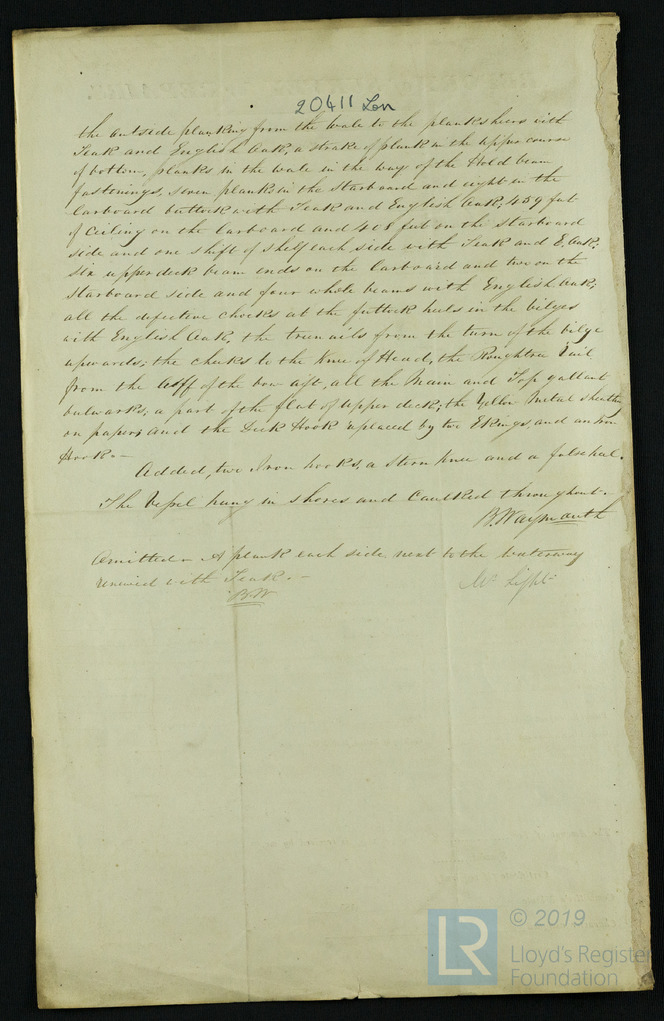 20411 Lon
the outside planking from the wale to the planksheers with
Teak and English Oak, a strake of plank in the upper course
of bottom, planks in the wale in the way of the Hold beam
fastenings, seven planks in the starboard and eight in the
larboard buttock with Teak and English Oak; 459 feet
of Ceiling on the larboard and 408 feet on the starboard
side and one shift of shelf each side with Teak and E. Oak;
six upperdeck beam ends on the larboard and two on the
starboard side and four whole beams with English Oak;
all the defective chocks at the futtock heels in the bilges
with English Oak, the treenails from the turn of the bilge
upwards; the cheeks to the Knee of Head, the Roughtree Rail
from the luff of the bow aft, all the Main and Top gallant
bulwarks; a part of the flat of upper deck; the Yellow Metal sheathg
on paper; and the Deck Hook replaced by two Ekings, and an Iron
Hook.—
Added, two Iron hooks, a Stern knee and a falsekeel.
The Vessel hung in shores and Caulked throughout.
B. Waymouth
Omitted – A plank each side next to the waterway
renewed with Teak.—
B.W
Mr
© 2019
LR
Lloyd's Register
Foundation